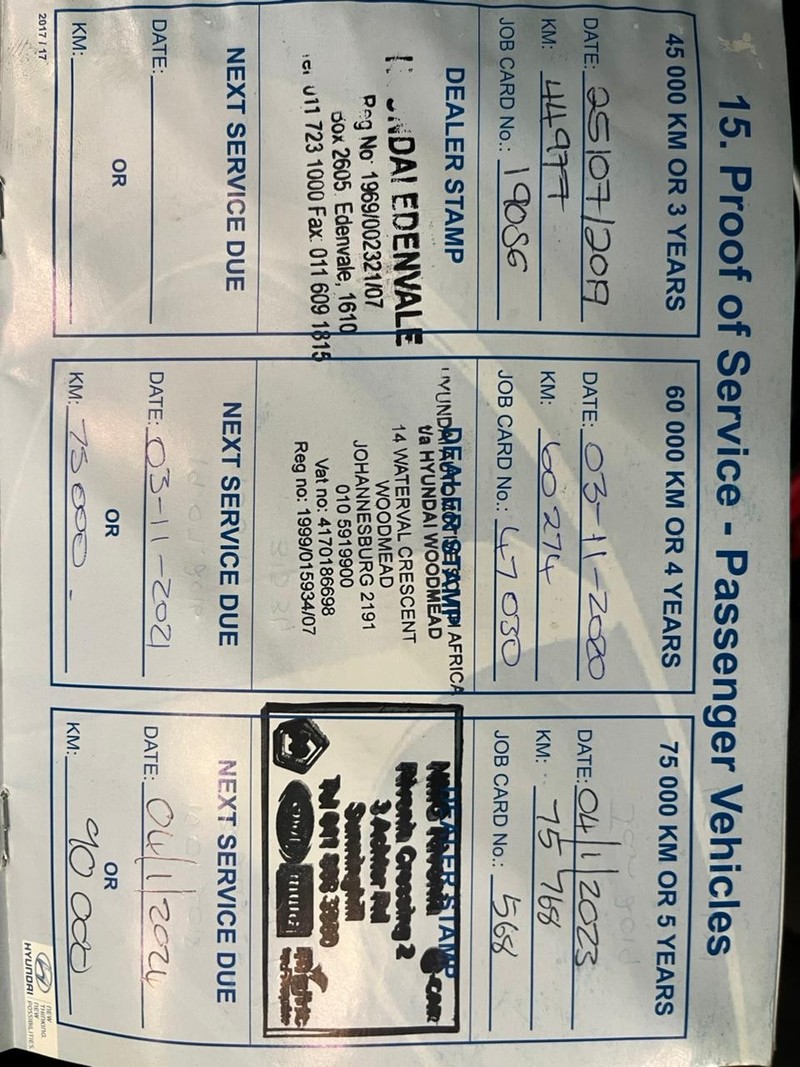 15. Proof of Service - Passenger Vehicles
45 000 KM OR 3 YEARS
DATE: 25/07/2019
KM: 44977
JOB CARD No.: 19086
DEALER STAMP
EDENVALE
Reg No: 1969/002321/07
Box 2605 Edenvale, 1610
011 723 1000 Fax: 011 609 1815
NEXT SERVICE DUE
DATE:
OR
KM:
2017 / 17
60 000 KM OR 4 YEARS
DATE: 03-11-2020
KM: 60274
JOB CARD No.: 47030
DEALER STAMP
AFRICA
t/a HYUNDAI WOODMEAD
14 WATERVAL CRESCENT
WOODMEAD
JOHANNESBURG 2191
010 5919900
Vat no: 4170186698
Reg no: 1999/015934/07
NEXT SERVICE DUE
DATE: 03-11-2021
OR
KM: 75000.
75 000 KM OR 5 YEARS
DATE: 04/1/2023
KM: 75 768
JOB CARD No.: 568
DEALER STAMP
Crossing 2
3 Achter Rd
Sunninghill
Tel 011
NEXT SERVICE DUE
DATE: 04/1/2024
OR
KM: 90 000
HYUNDAI
NEW THINKING.
NEW POSSIBILITIES.